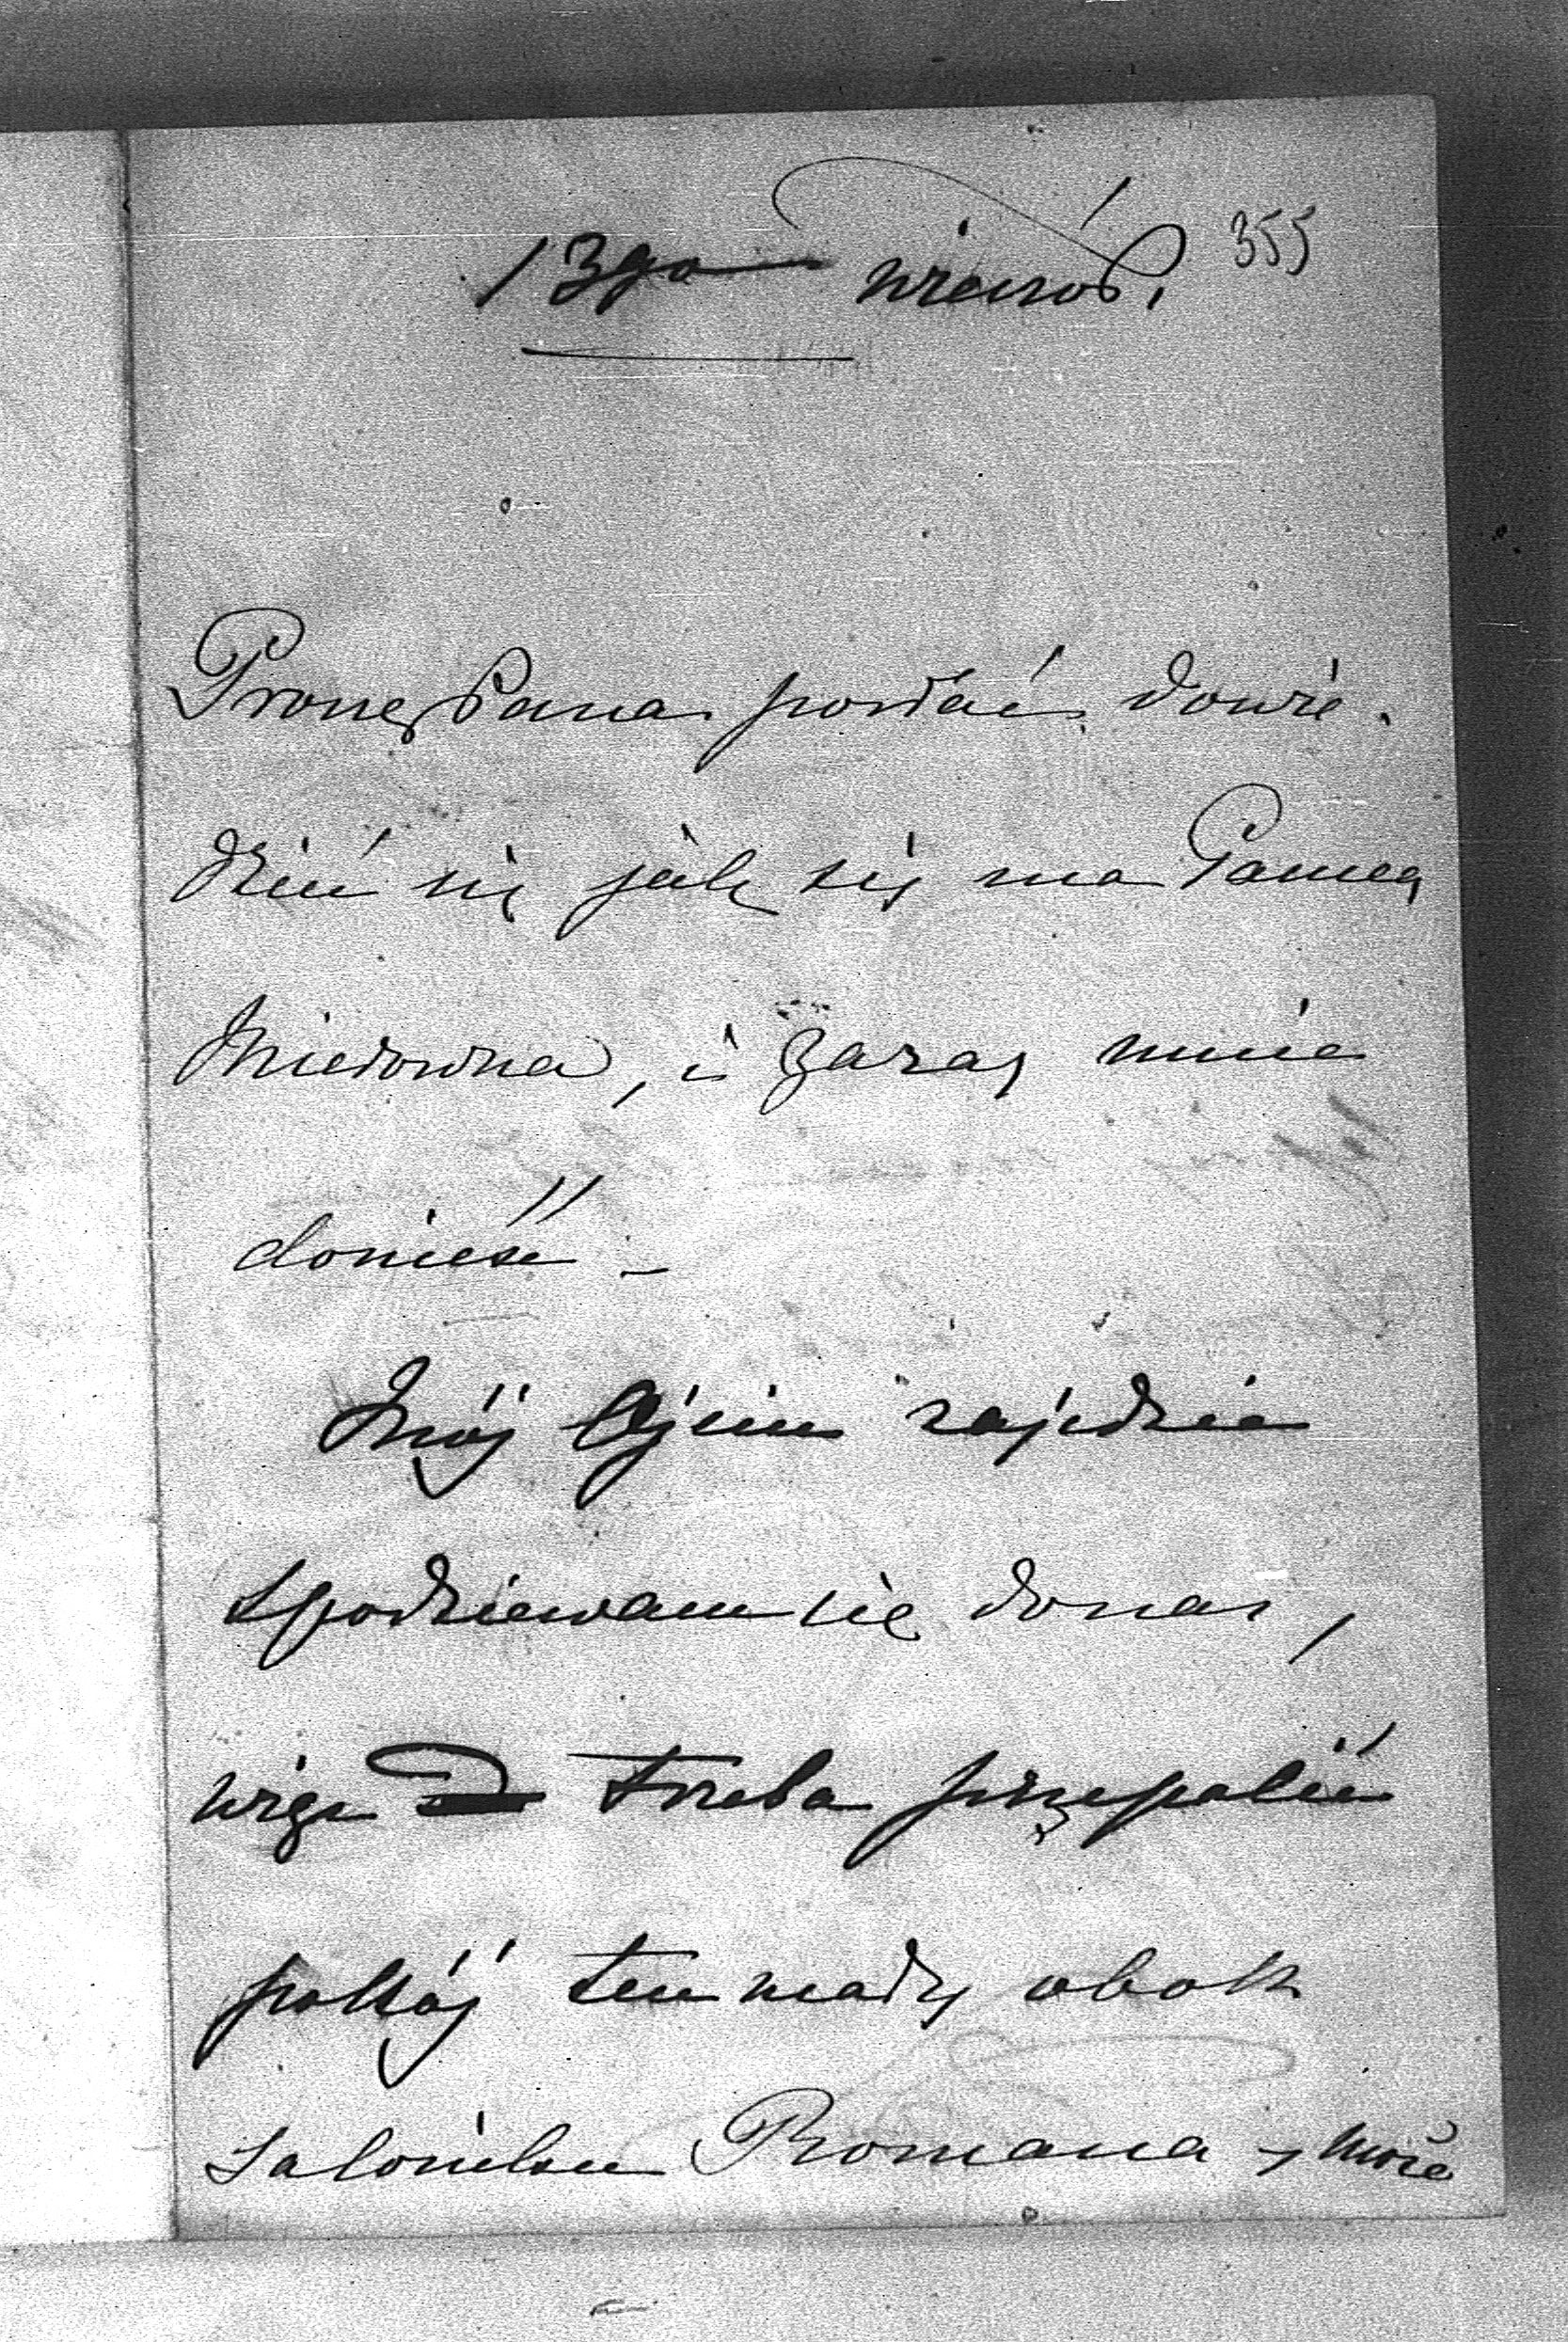 355
13go wieczór.
Proszę Pana posłać dowie-
dzieć się jak się ma Panna
Miedowna, i zaraz mnie
donieść -
Mój Ojciec zajedzie
spodziewam się do nas,
więc trzeba przepalić
pokój ten mały obok
saloniku Romana, może